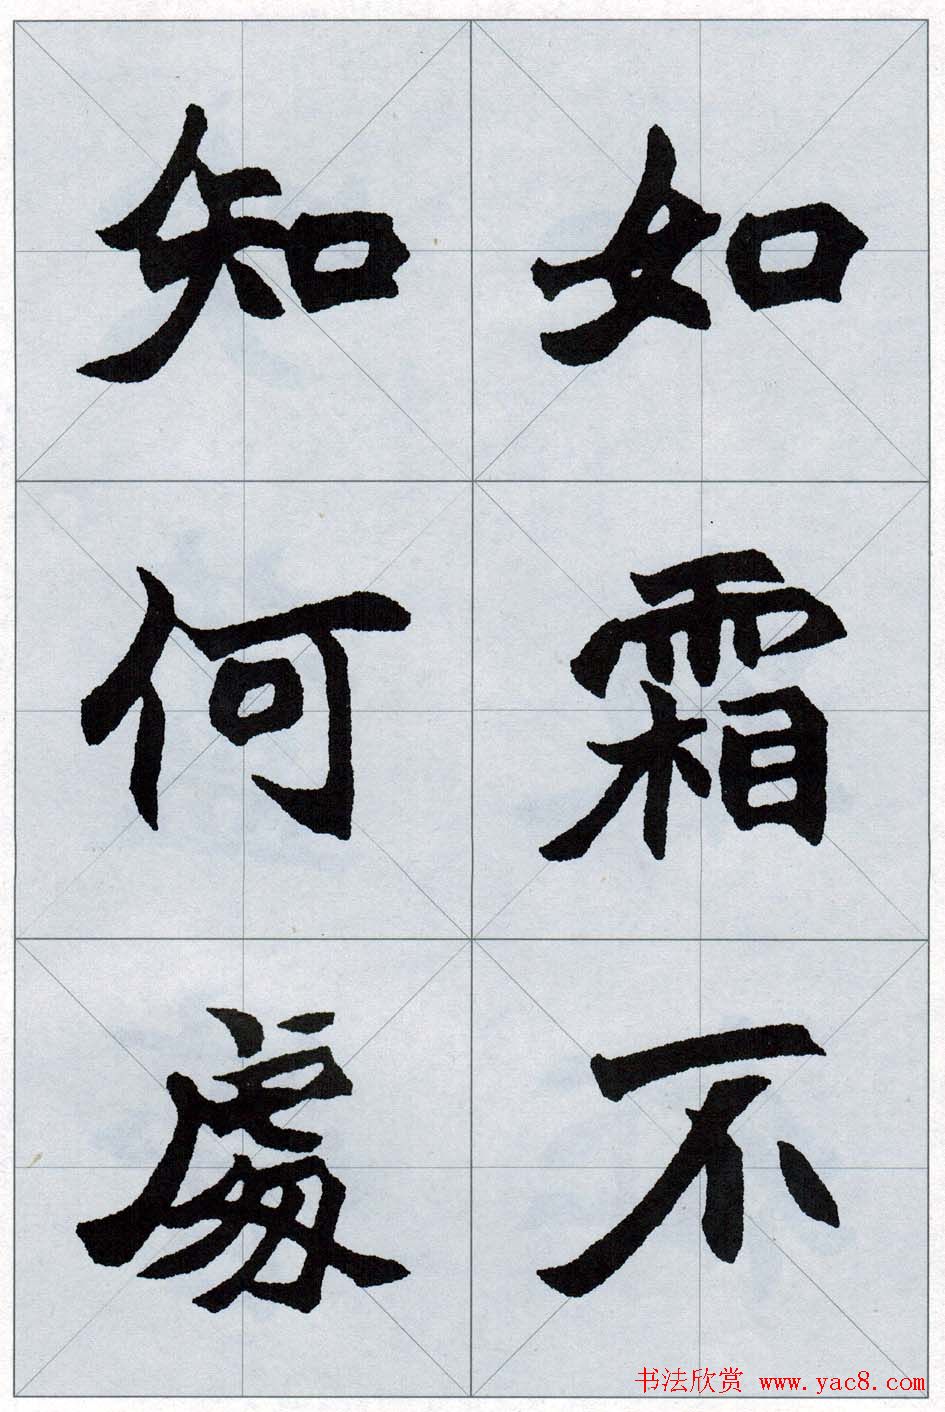 如霜不
知何處
书法欣赏 www.yac8.com